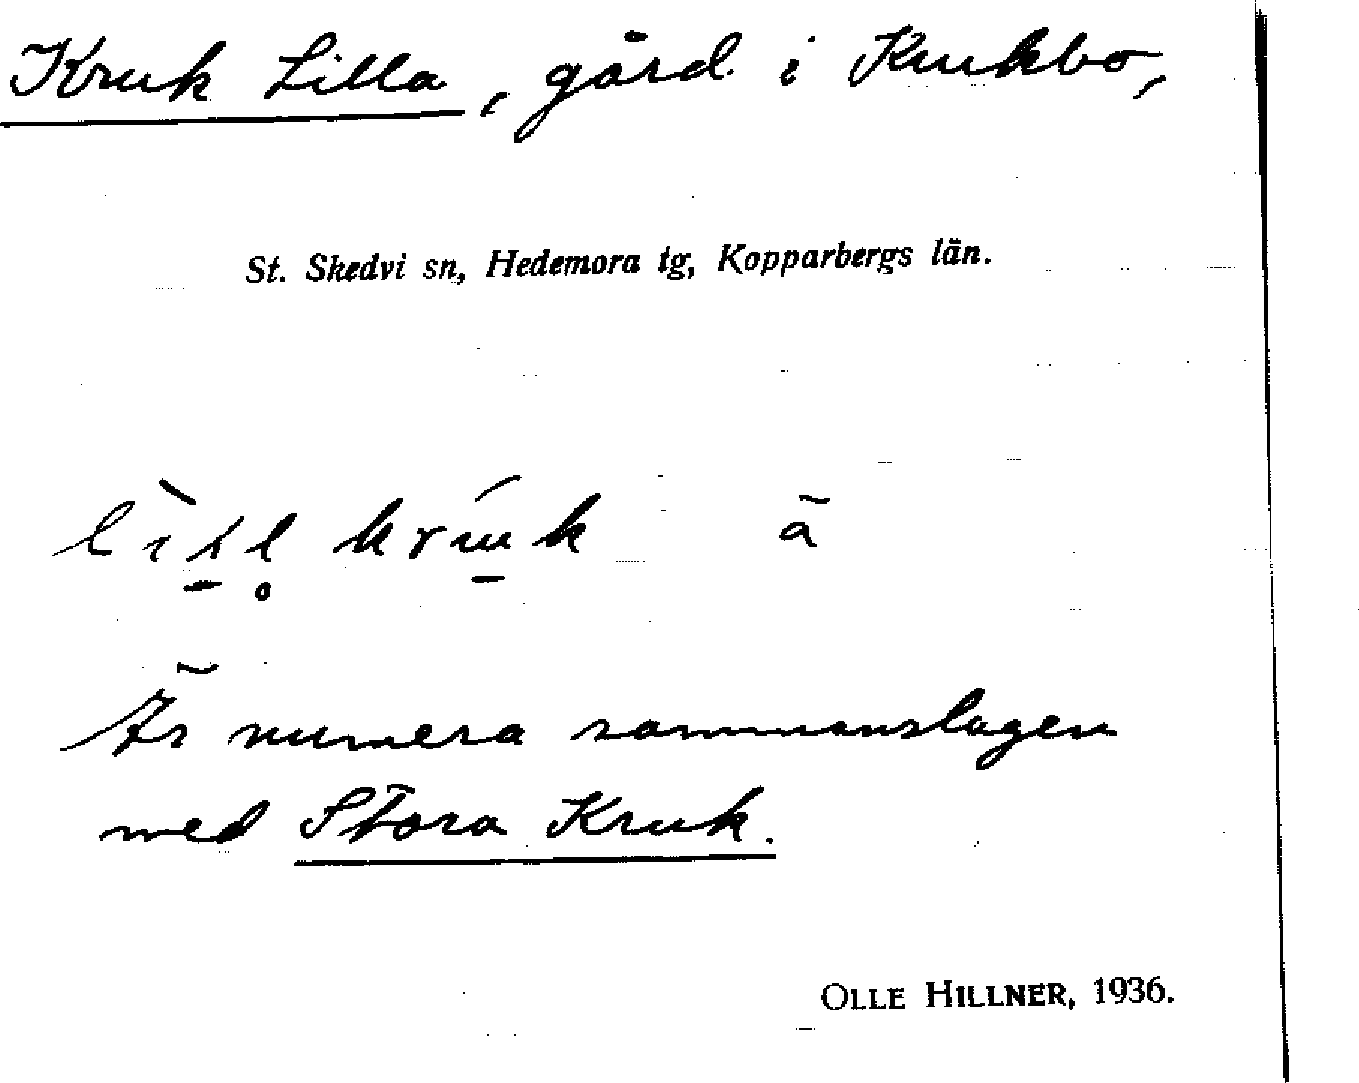 Kruk Lilla, gård i Krukbo,
St. Skedvi sn, Hedemora tg, Kopparbergs län.
å
Är numera sammanslagen
med Stora Kruk.
OLLE HILLNER, 1936.